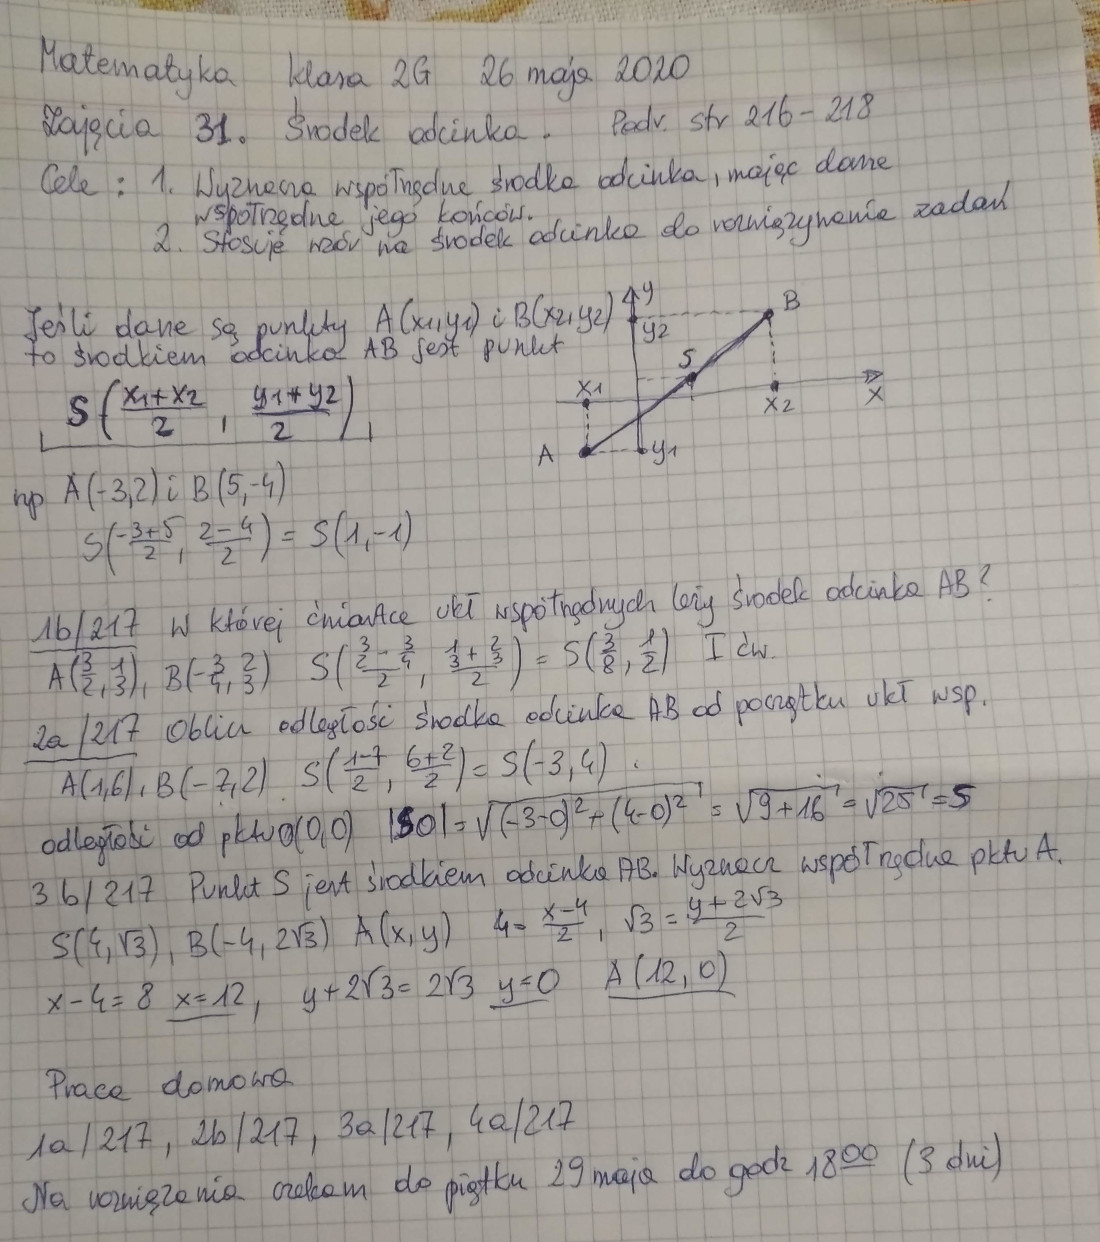 Matematyka klasa 2G 26 maja 2020
Zajęcia 31. Środek odcinka. Podr. str 216-218
Cele: 1. Wyznacza współrzędne środka odcinka, mając dane
współrzędne jego końców.
2. Stosuje wzór na środek odcinka do rozwiązywania zadań
Jeśli dane są punkty A(x1,y1) i B(x2,y2)
to środkiem odcinka AB jest punkt
S(x1+x2/2, y1+y2/2)
y
B
y2
S
x1
x2
x
A
y1
np A(-3,2) i B(5,-4)
S(-3+5/2, 2-4/2) = S(1,-1)
1b/217 W której ćwiartce ukł współrzędnych leży środek odcinka AB?
A(3/2, 1/3), B(-3/4, 2/3) S(3/2 - 3/4 / 2, 1/3 + 2/3 / 2) = S(3/8, 1/2) I ćw.
2a/217 Oblicz odległość środka odcinka AB od początku ukł wsp.
A(1,6), B(-7,2) S(1-7/2, 6+2/2) = S(-3,4).
odległość od pktu O(0,0) |SO| = √(-3-0)²+(4-0)² = √9+16 = √25 = 5
3b/217 Punkt S jest środkiem odcinka AB. Wyznacz współrzędne pktu A.
S(4,√3), B(-4, 2√3) A(x,y) 4 = x-4/2, √3 = y+2√3/2
x-4=8 x=12, y+2√3=2√3 y=0 A(12,0)
Praca domowa
1a/217, 2b/217, 3a/217, 4a/217
Na rozwiązania czekam do piątku 29 maja do godz 18 00 (3 dni)